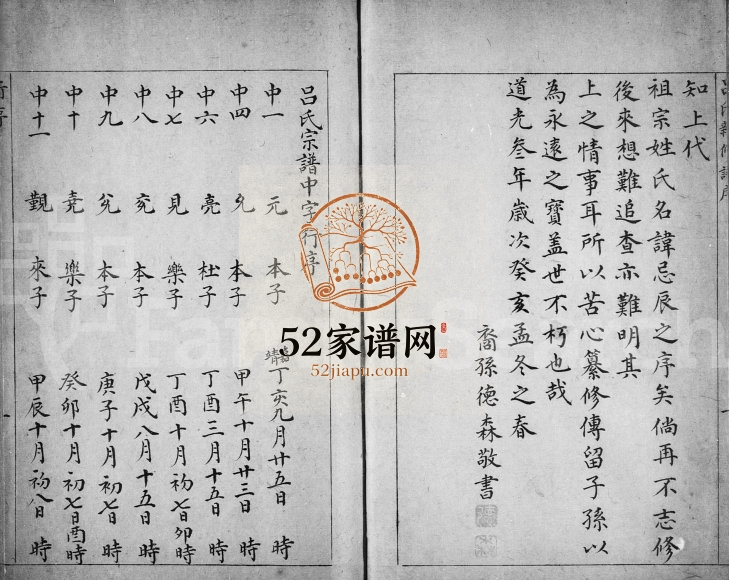 知上代
祖宗姓氏名諱忌辰之序矣倘再不志修
後來想難追查亦難明其
上之情事耳所以苦心纂修傳留子孫以
為永遠之寶蓋世不朽也哉
道光叄年歲次癸亥孟冬之春
裔孫德森敬書
呂氏宗譜中字行序
中一 元 本子 嘉靖丁亥九月廿五日 時
中四 本子 甲午十月廿三日 時
中六 亮 杜子 丁酉三月十五日 時
中七 見 樂子 丁酉十月初七日卯時
中八 兖 本子 戊戌八月十五日 時
中九 兊 本子 庚子十月初七日 時
中十 堯 樂子 癸卯十月初七日酉時
中十一 觀 來子 甲辰十月初八日 時
52家谱网
52jiapu.com